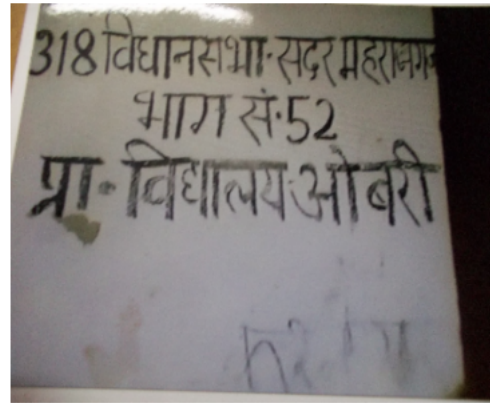 318 विधानसभा-सदर महराजगंज
भाग सं.52
प्रा॰ विद्यालय-ओबरी